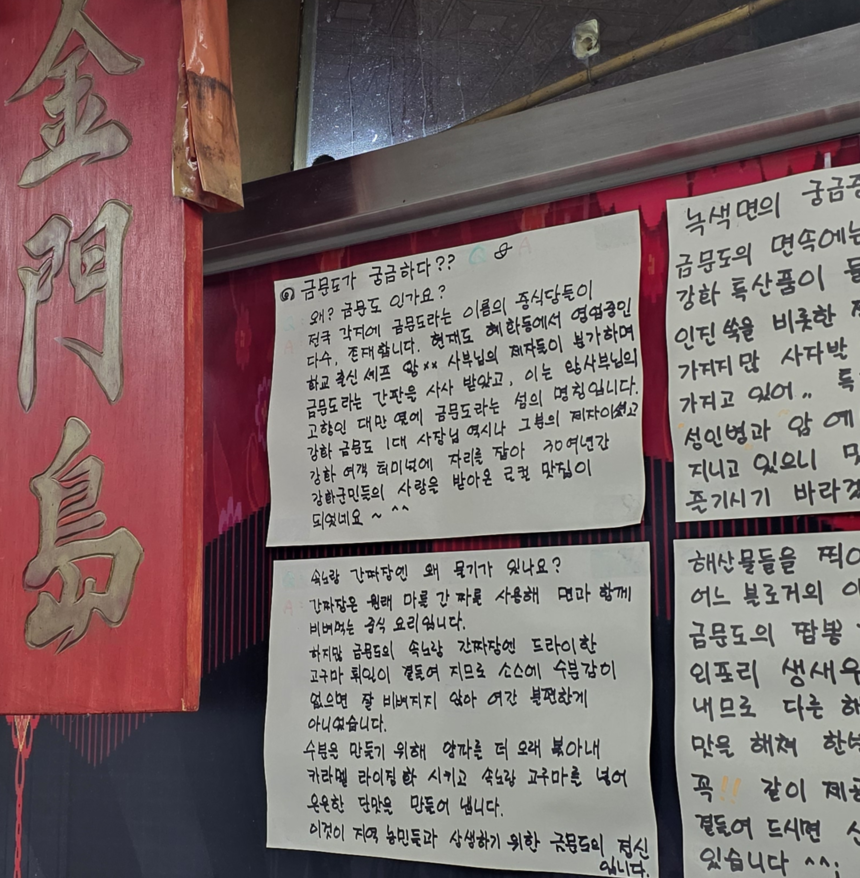 金
門
島
금문도가 궁금하다??
왜? 금문도 인가요?
전국 각지에 금문도라는 이름의 중식당들이
다수, 존재합니다. 현재도 혜화동에서 영업중인
학교 출신 셰프 양xx 사부님의 제자들이 불가하며
금문도라는 간판을 사사 받았고, 이는 양사부님의
고향인 대만 옆에 금문도라는 섬의 명칭입니다.
강화 금문도 1대 사장님 역시나 그분의 제자이셨고
강화 여객 터미널에 자리를 잡아 30여년간
강화군민들의 사랑을 받아온 로컬 맛집이
되었네요 ~ ^^
속노랑 간짜장엔 왜 물기가 있나요?
간짜장은 원래 마를 간 짜를 사용해 면과 함께
비벼먹는 중식 요리입니다.
하지만 금문도의 속노랑 간짜장엔 드라이한
고구마 튀김이 곁들여 지므로 소스에 수분감이
없으면 잘 비벼지지 않아 여간 불편한게
아니었습니다.
수분을 만들기 위해 양파를 더 오래 볶아내
카라멜 라이징화 시키고 속노랑 고구마를 넣어
은은한 단맛을 만들어 냅니다.
이것이 지역 농민들과 상생하기 위한 금문도의 정신
입니다.
녹색면의 궁금
금문도의 면속에는
강화 특산품이
인진 쑥을 비롯한
가지지만 사자발
가지고 있어..
성인병과 암에
지니고 있으니
즐기시기 바라
해산물들을
어느 블로거의
금문도의 짬뽕
외포리 생새우
내므로 다른 해
맛을 해쳐
꼭!! 같이 제
곁들여 드시면
있습니다 ^^;